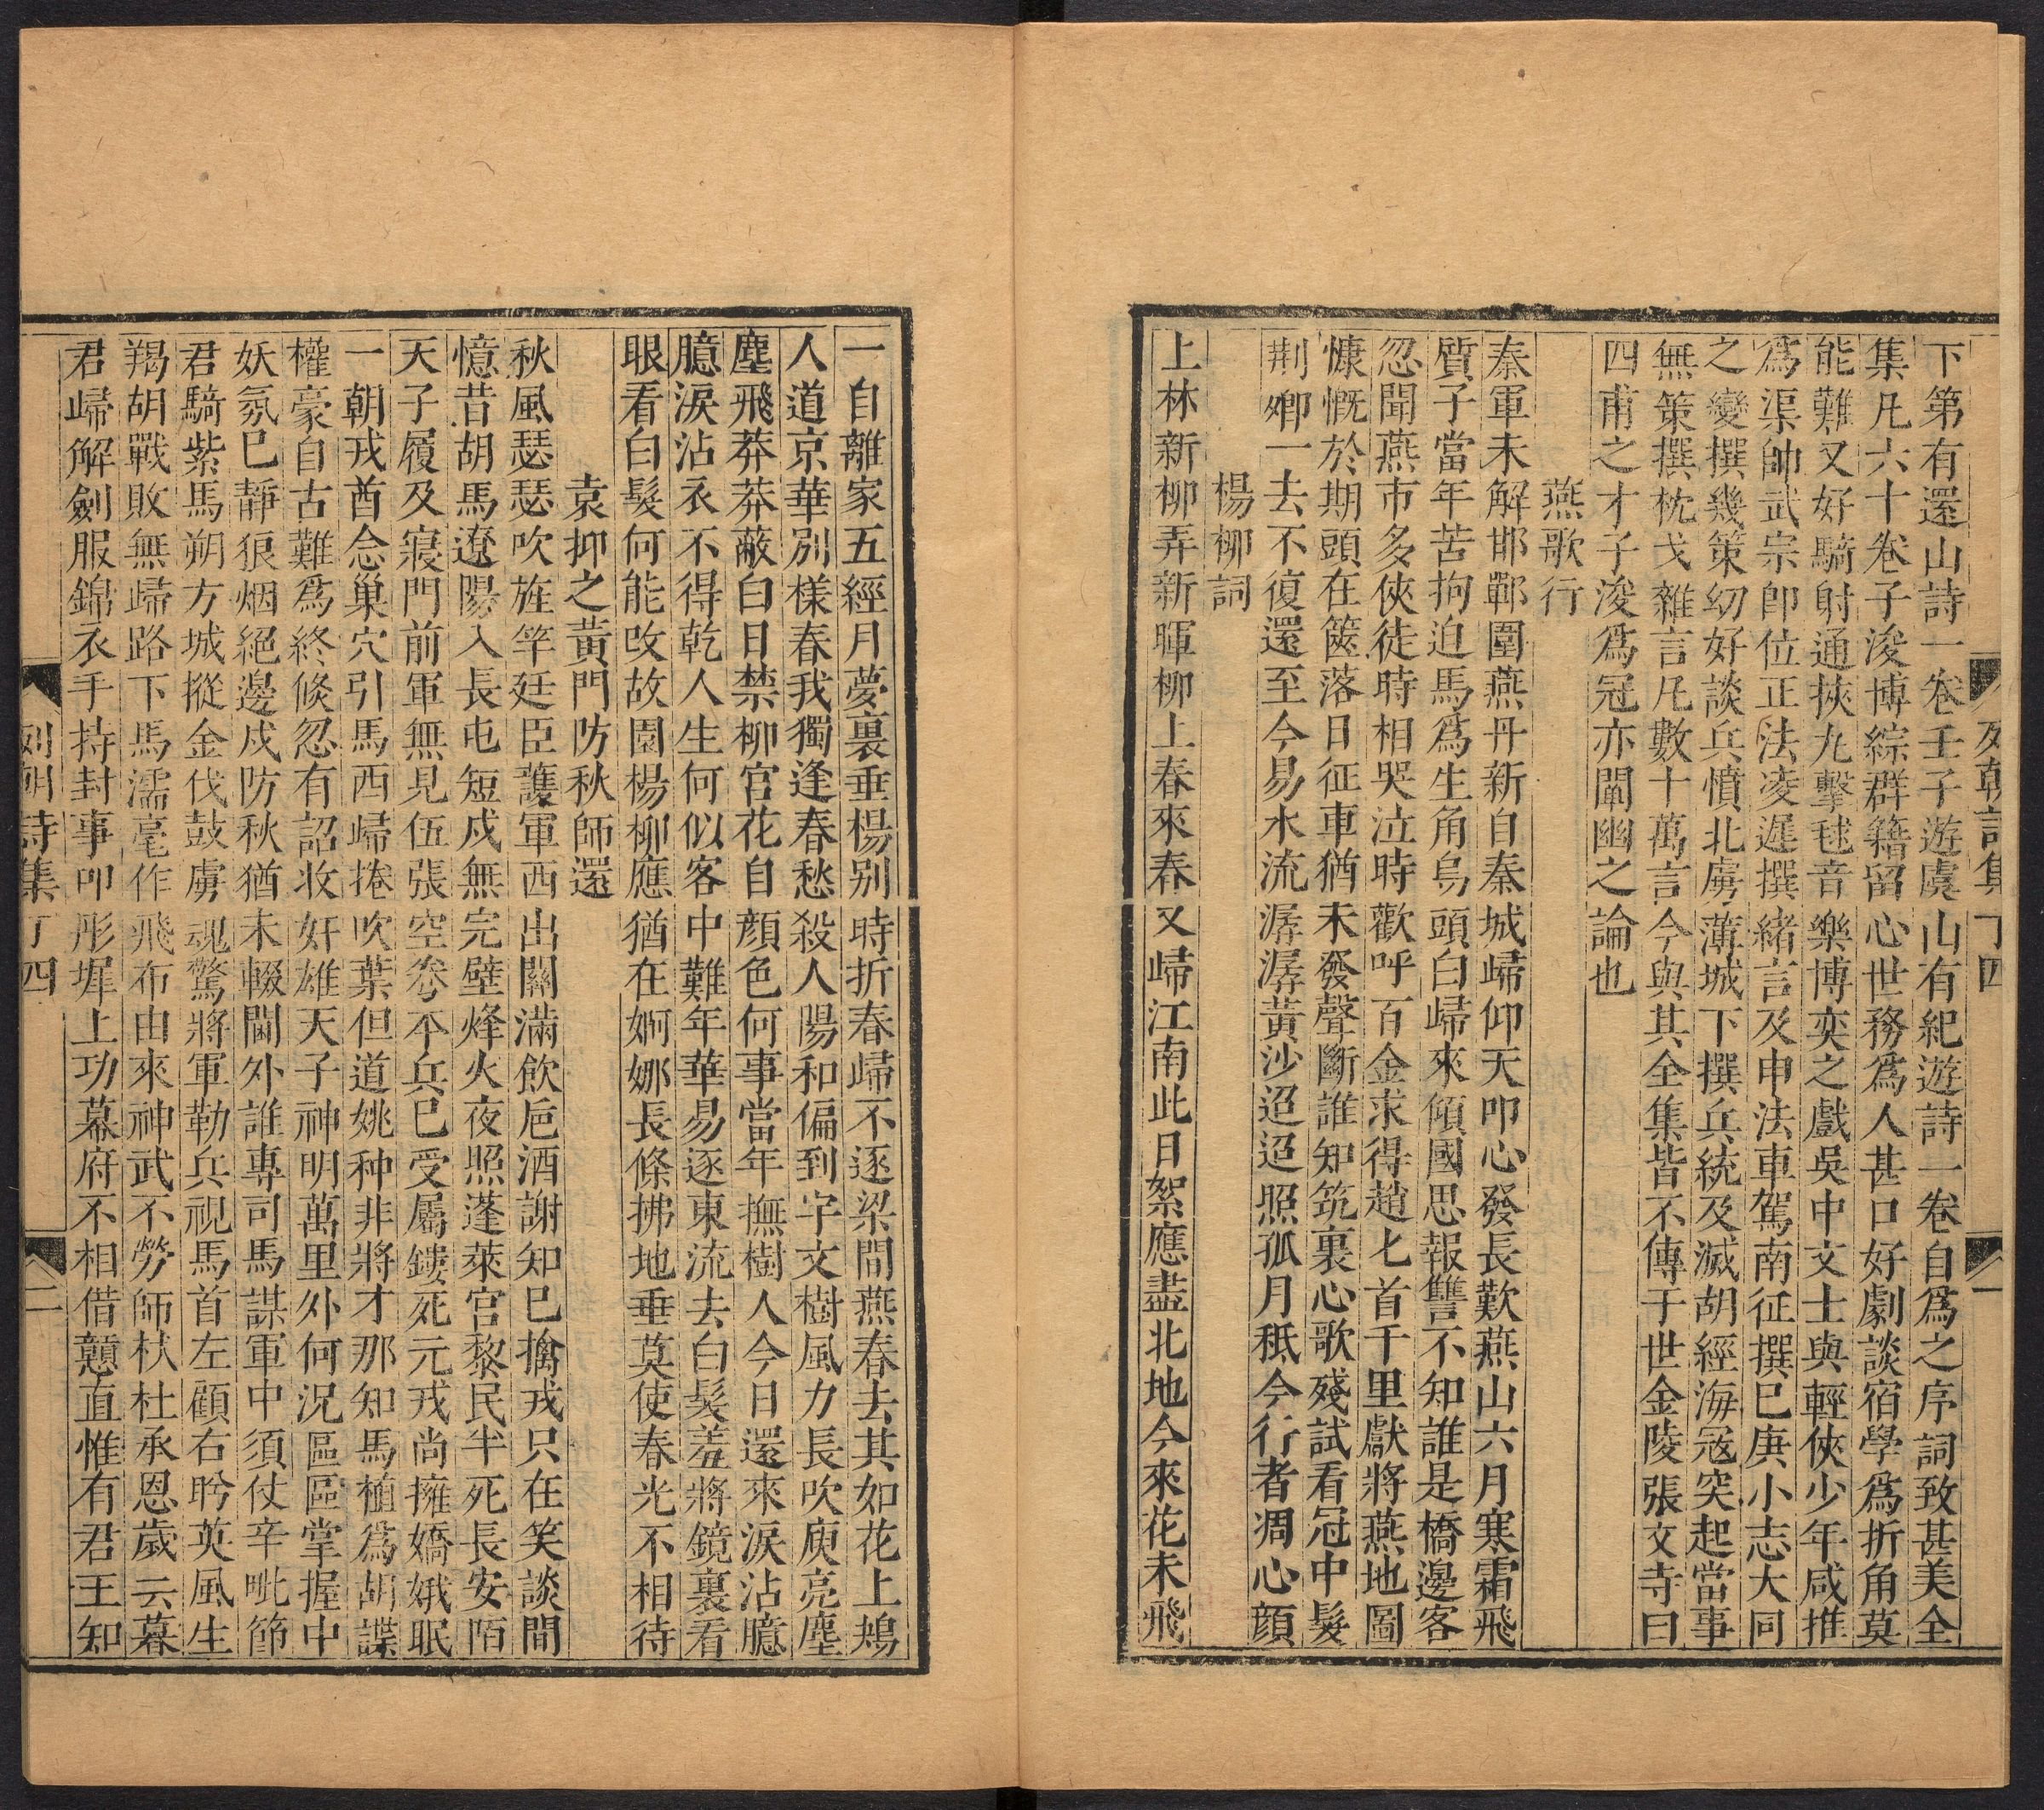 下第有還山詩一卷壬子遊虞山有紀遊詩一卷自爲之序詞致甚美全
集凡六十卷子浚博綜群籍留心世務爲人甚口好劇談宿學爲折角莫
能難又好騎射通挾九擊毬音樂博奕之戲吳中文士與輕俠少年咸推
爲渠帥武宗卽位正法凌遲撰緒言及申法車駕南征撰巳庚小志大同
之變撰幾策幼好談兵憤北虜薄城下撰兵統及滅胡經海寇突起當事
無策撰枕戈雜言凡數十萬言今與其全集皆不傳于世金陵張文寺曰
四甫之才子浚爲冠亦闡幽之論也
燕歌行
秦軍未解邯鄲圍燕丹新自秦城歸仰天叩心發長歎燕山六月寒霜飛
質子當年苦拘迫馬爲生角烏頭白歸來傾國思報讐不知誰是橋邊客
忽聞燕市多俠徒時相哭泣時歡呼百金求得趙匕首千里獻將燕地圖
慷慨於期頭在篋落日征車猶未發聲斷誰知筑裏心歌殘試看冠中髮
荆卿一去不復還至今易水流潺潺黃沙迢迢照孤月秪今行者凋心顔
楊柳詞
上林新柳弄新暉柳上春來春又歸江南此日絮應盡北地今來花未飛
列朝詩集丁四 一
一自離家五經月夢裏垂楊別時折春歸不逐梁間燕春去其如花上鴂
人道京華別樣春我獨逢春愁殺人陽和偏到字文樹風力長吹庾亮塵
塵飛莽莽蔽白日禁柳宮花自顔色何事當年撫樹人今日還來淚沾臆
臆淚沾衣不得乾人生何似客中難年華易逐東流去白髮羞將鏡裏看
眼看白髮何能改故園楊柳應猶在婀娜長條拂地垂莫使春光不相待
袁抑之黃門防秋師還
秋風瑟瑟吹旌竿廷臣護軍西出關滿飲巵酒謝知巳擒戎只在笑談間
憶昔胡馬遼陽入長屯短戍無完壁烽火夜照蓬萊宮黎民半死長安陌
天子履及寢門前軍無見伍張空弮本兵巳受屬鏤死元戎尚擁嬌娥眠
一朝戎酋念巢穴引馬西歸捲吹葉但道姚种非將才那知馬植爲胡諜
權豪自古難爲終倏忽有詔收奸雄天子神明萬里外何況區區掌握中
妖氛巳靜狼烟絕邊戍防秋猶未輟閫外誰專司馬謀軍中須仗辛毗節
君騎紫馬朔方城摐金伐鼓虜魂驚將軍勒兵視馬首左顧右盻英風生
羯胡戰敗無歸路下馬濡毫作飛布由來神武不勞師杕杜承恩歲云暮
君歸解劍服錦衣手持封事叩彤墀上功幕府不相借戇直惟有君王知
列朝詩集丁四 二